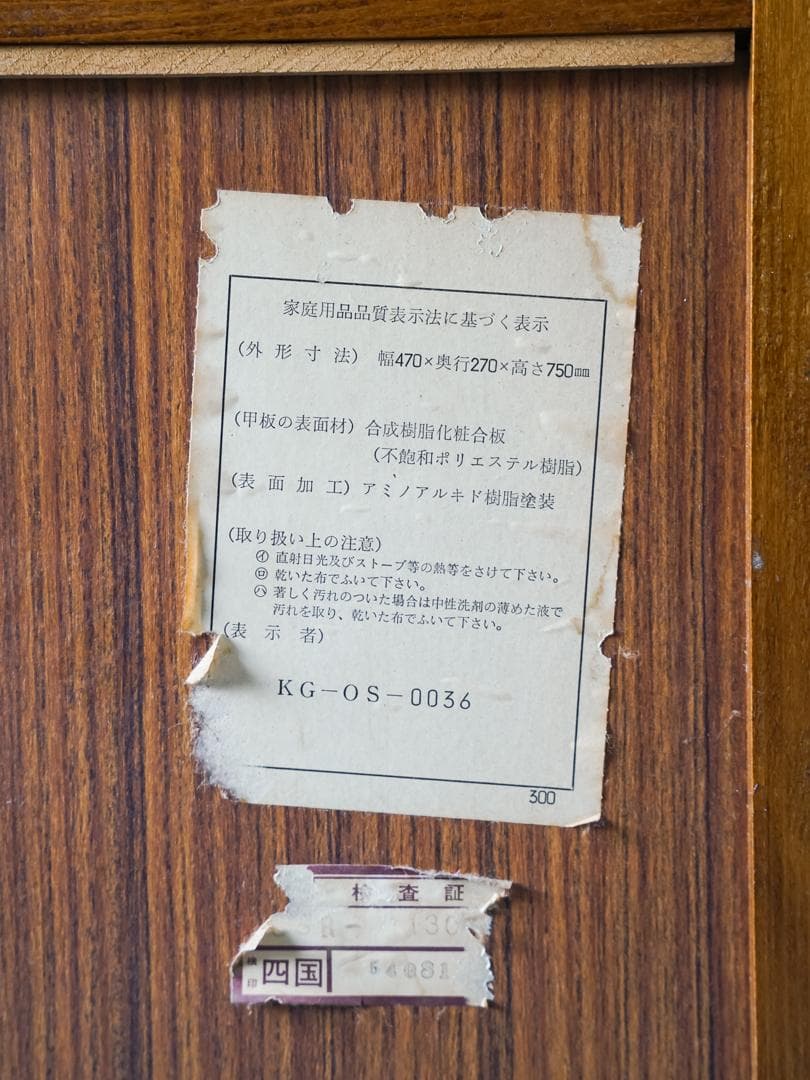 家庭用品品質表示法に基づく表示
(外形寸法) 幅470×奥行270×高さ750㎜
(甲板の表面材) 合成樹脂化粧合板
(不飽和ポリエステル樹脂)
(表面加工) アミノアルキド樹脂塗装
(取り扱い上の注意)
㋑ 直射日光及びストーブ等の熱等をさけて下さい。
㋺ 乾いた布でふいて下さい。
㋩ 著しく汚れのついた場合は中性洗剤の薄めた液で
汚れを取り、乾いた布でふいて下さい。
(表示者)
KG-OS-0036
300
検査証
検印 四国